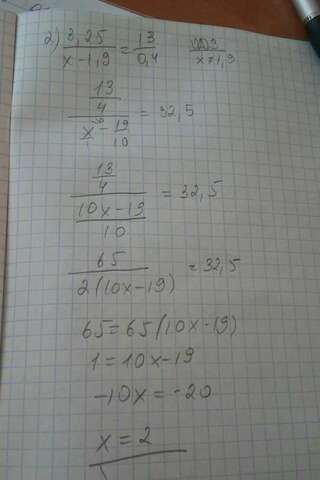 2) 3,25/(x-1,9) = 13/0,4 ОДЗ x≠1,9
(13/4)/(x/1 - 19/10) = 32,5
(13/4)/((10x-19)/10) = 32,5
65/(2(10x-19)) = 32,5
65=65(10x-19)
1=10x-19
-10x=-20
x=2